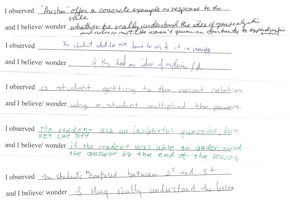 I observed "Austin" offer a concrete example in response to the
rule
and I believe/ wonder whether he really understood the idea of generalization
and rules or not. He wasn't given an opportunity to expand upon this
I observed The student
and I believe/ wonder if they had an idea of
I observed a student getting to the correct relation
and I believe/ wonder why a student multiplied the powers
I observed the student ask an insightful question, but
get cut off
and I believe/ wonder if the student was able to understand
the answer by the end of the lesson
I observed the students confused between 2⁵ and 5²
and I believe/ wonder if they really understand the lesson